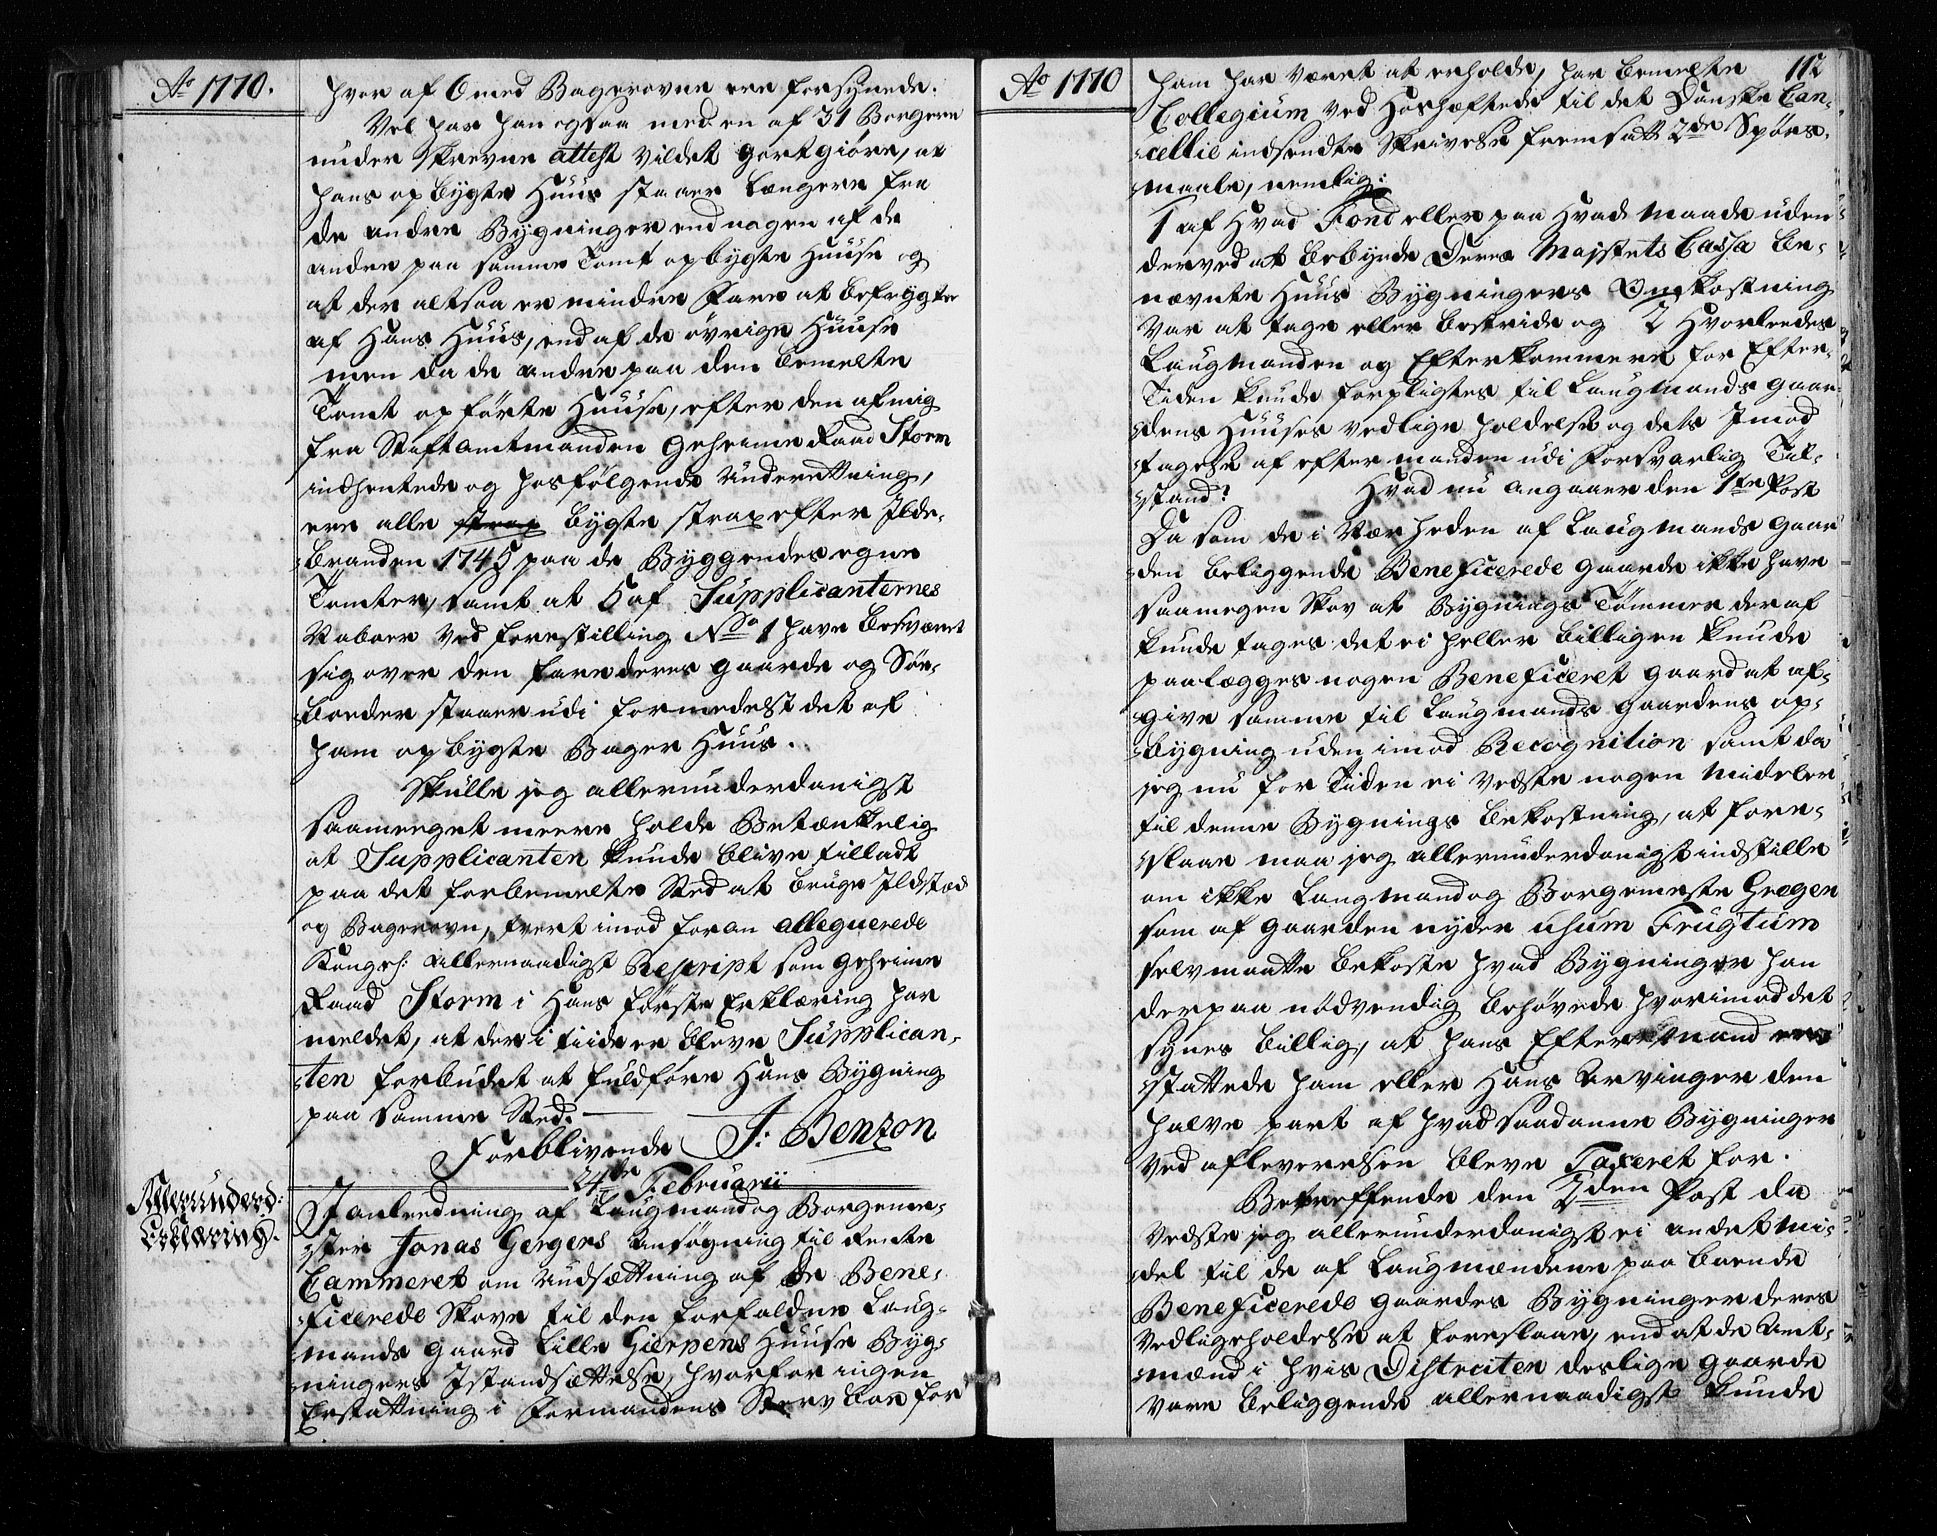 Ao 1770.
hvor af 6 med Bagerovne ere forsynede.
Vel har han ogsaa med en af 31 Borgere
under skreven attest vildet godtgiøre, at
hans opbygte Huus staaer længere fra
de andre Bygninger end nogen af de
andre paa samme Tomt opbygte Huuse og
at der altsaa er mindre Fare at befrygte
af Hans Huus, end af de øvrige Huuse
men da de andre paa den bemelte
Tomt opførte Huuse, efter den af mig
fra Stiftamtmanden Geheime Raad Storm
indhentede og hosfølgende Underrettning,
ere alle strax bygte strax efter Ilde-
-branden 1745 paa de Byggendes egne
Tomter, samt at 5 af Supplicanternes
Naboer ved forestilling No 1 have besværet
sig over den fare deres gaarde og Søe-
-boeder staaer udi formedelst det af
ham opbygte Bager Huus.
Skulle jeg allerunderdanigst
saameget meere holde Betænkelig
at Supplicanten kunde blive tilladt
paa det forbemelte Sted at bruge Ildsted
og Bagerovn, tvert imod foran alleguerede
Kongel: allernaadigst Rescript som Geheime
Raad Storm i Hans første Erklæring har
meldet, at der i tiide er bleve Supplican-
-ten forbudet at fuldføre Hans Bygning
paa samme Sted.
Forblivende J: Benzon
24de Februarii
Allerunderd:
Erklæring.
I anledning af Laugmand og Borgeme-
-ster Jonas Gergers ansøgning til Rente
Cammeret om Udsættning af de Bene-
-ficerede Skove til den forfaldne Laug-
-mands Gaard Lille Gierpens Huuse Byg-
-ningers Istandsættelse, hvorfor ingen
Erstattning i Formandens Sterv boe for
Ao 1770
112
ham har været at erholde, har bemelte
Collegium ved Hoshæftede til det Danske Can-
-cellie indsendte Skrivelse fremsatt 2de Spørs-
-maale, nemlig:
1 af Hvad Fond eller paa Hvad Maade uden
derved at bebyrde Deres Majestets Cassa be-
nævnte Huus Bygningers Omkostning
var at tage eller bestride og 2 Hvorledes
Laugmanden og Efterkommere for Efter-
Tiden kunde forpligtes til Laugmands Gaar-
-dens Huuses vedlige holdelse og dets Imod
-tagelse af eftermanden udi forsvarlig Til-
-stand? Hvad nu angaaer den 1te Post
Da som de i Nærheden af Laugmands Gaar
-den beliggende Beneficerede Gaarde ikke have
saamegen Skov at Bygnings Tømmer deraf
kunde tages det ei heller billigen kunde
paalægges nogen Beneficeret Gaard at af-
-give samme til Laugmands Gaardens op-
-bygning uden imod Recognition samt da
jeg nu for Tiden ei vedste nogen Mideler
til denne Bygnings bekostning, at fore-
-slaae maa jeg allerunderdanigst indstille
om ikke Laugmand og Borgemeste Gregen
som af Gaarden nyder usum Frugtum
selv maatte bekoste hvad Bygninger han
derpaa nødvendig behøvede hvorimod det
synes billig, at hans Eftermand er
-stattede ham eller Hans Arvinger den
halve part af hvad saadanne Bygninger
ved afleverelsen bleve Taxeret for.
Betreffende den 2den Post da
vedste jeg allerunderdanigst ei andet mi-
-del til de af Laugmændene paa boende
Beneficerede Gaardes Bygninger deres
vedligeholdelse at foreslaae, end at de Amt-
-mænd i hvis Distrcten deslige Gaarde
vare beliggende allernaadigst kunde